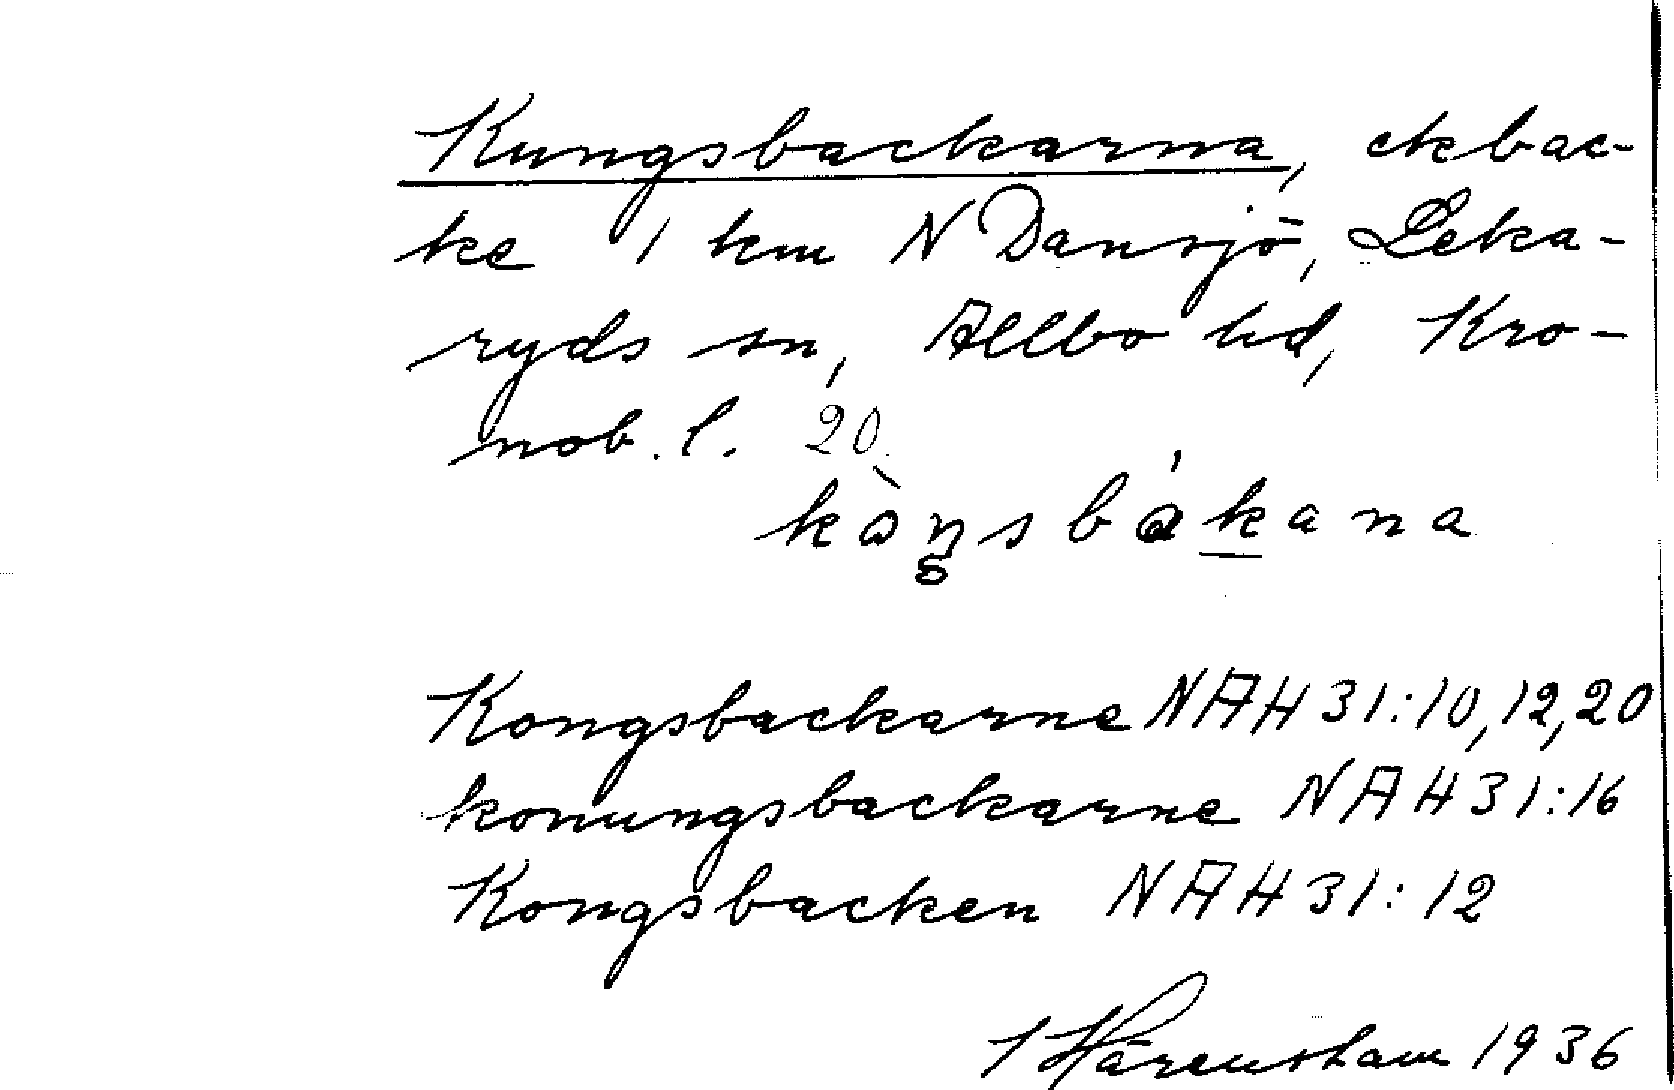 Kungsbackarna, ekbac-
ke 1 km N Dansjö, Leka-
ryds sn, Allbo hd, Kro-
nob. l. 20.
kòŋsbákana
Kongsbackarne NAH 31:10, 12, 20
konungsbackarne NAH 31:16
Kongsbacken NAH 31:12
1936